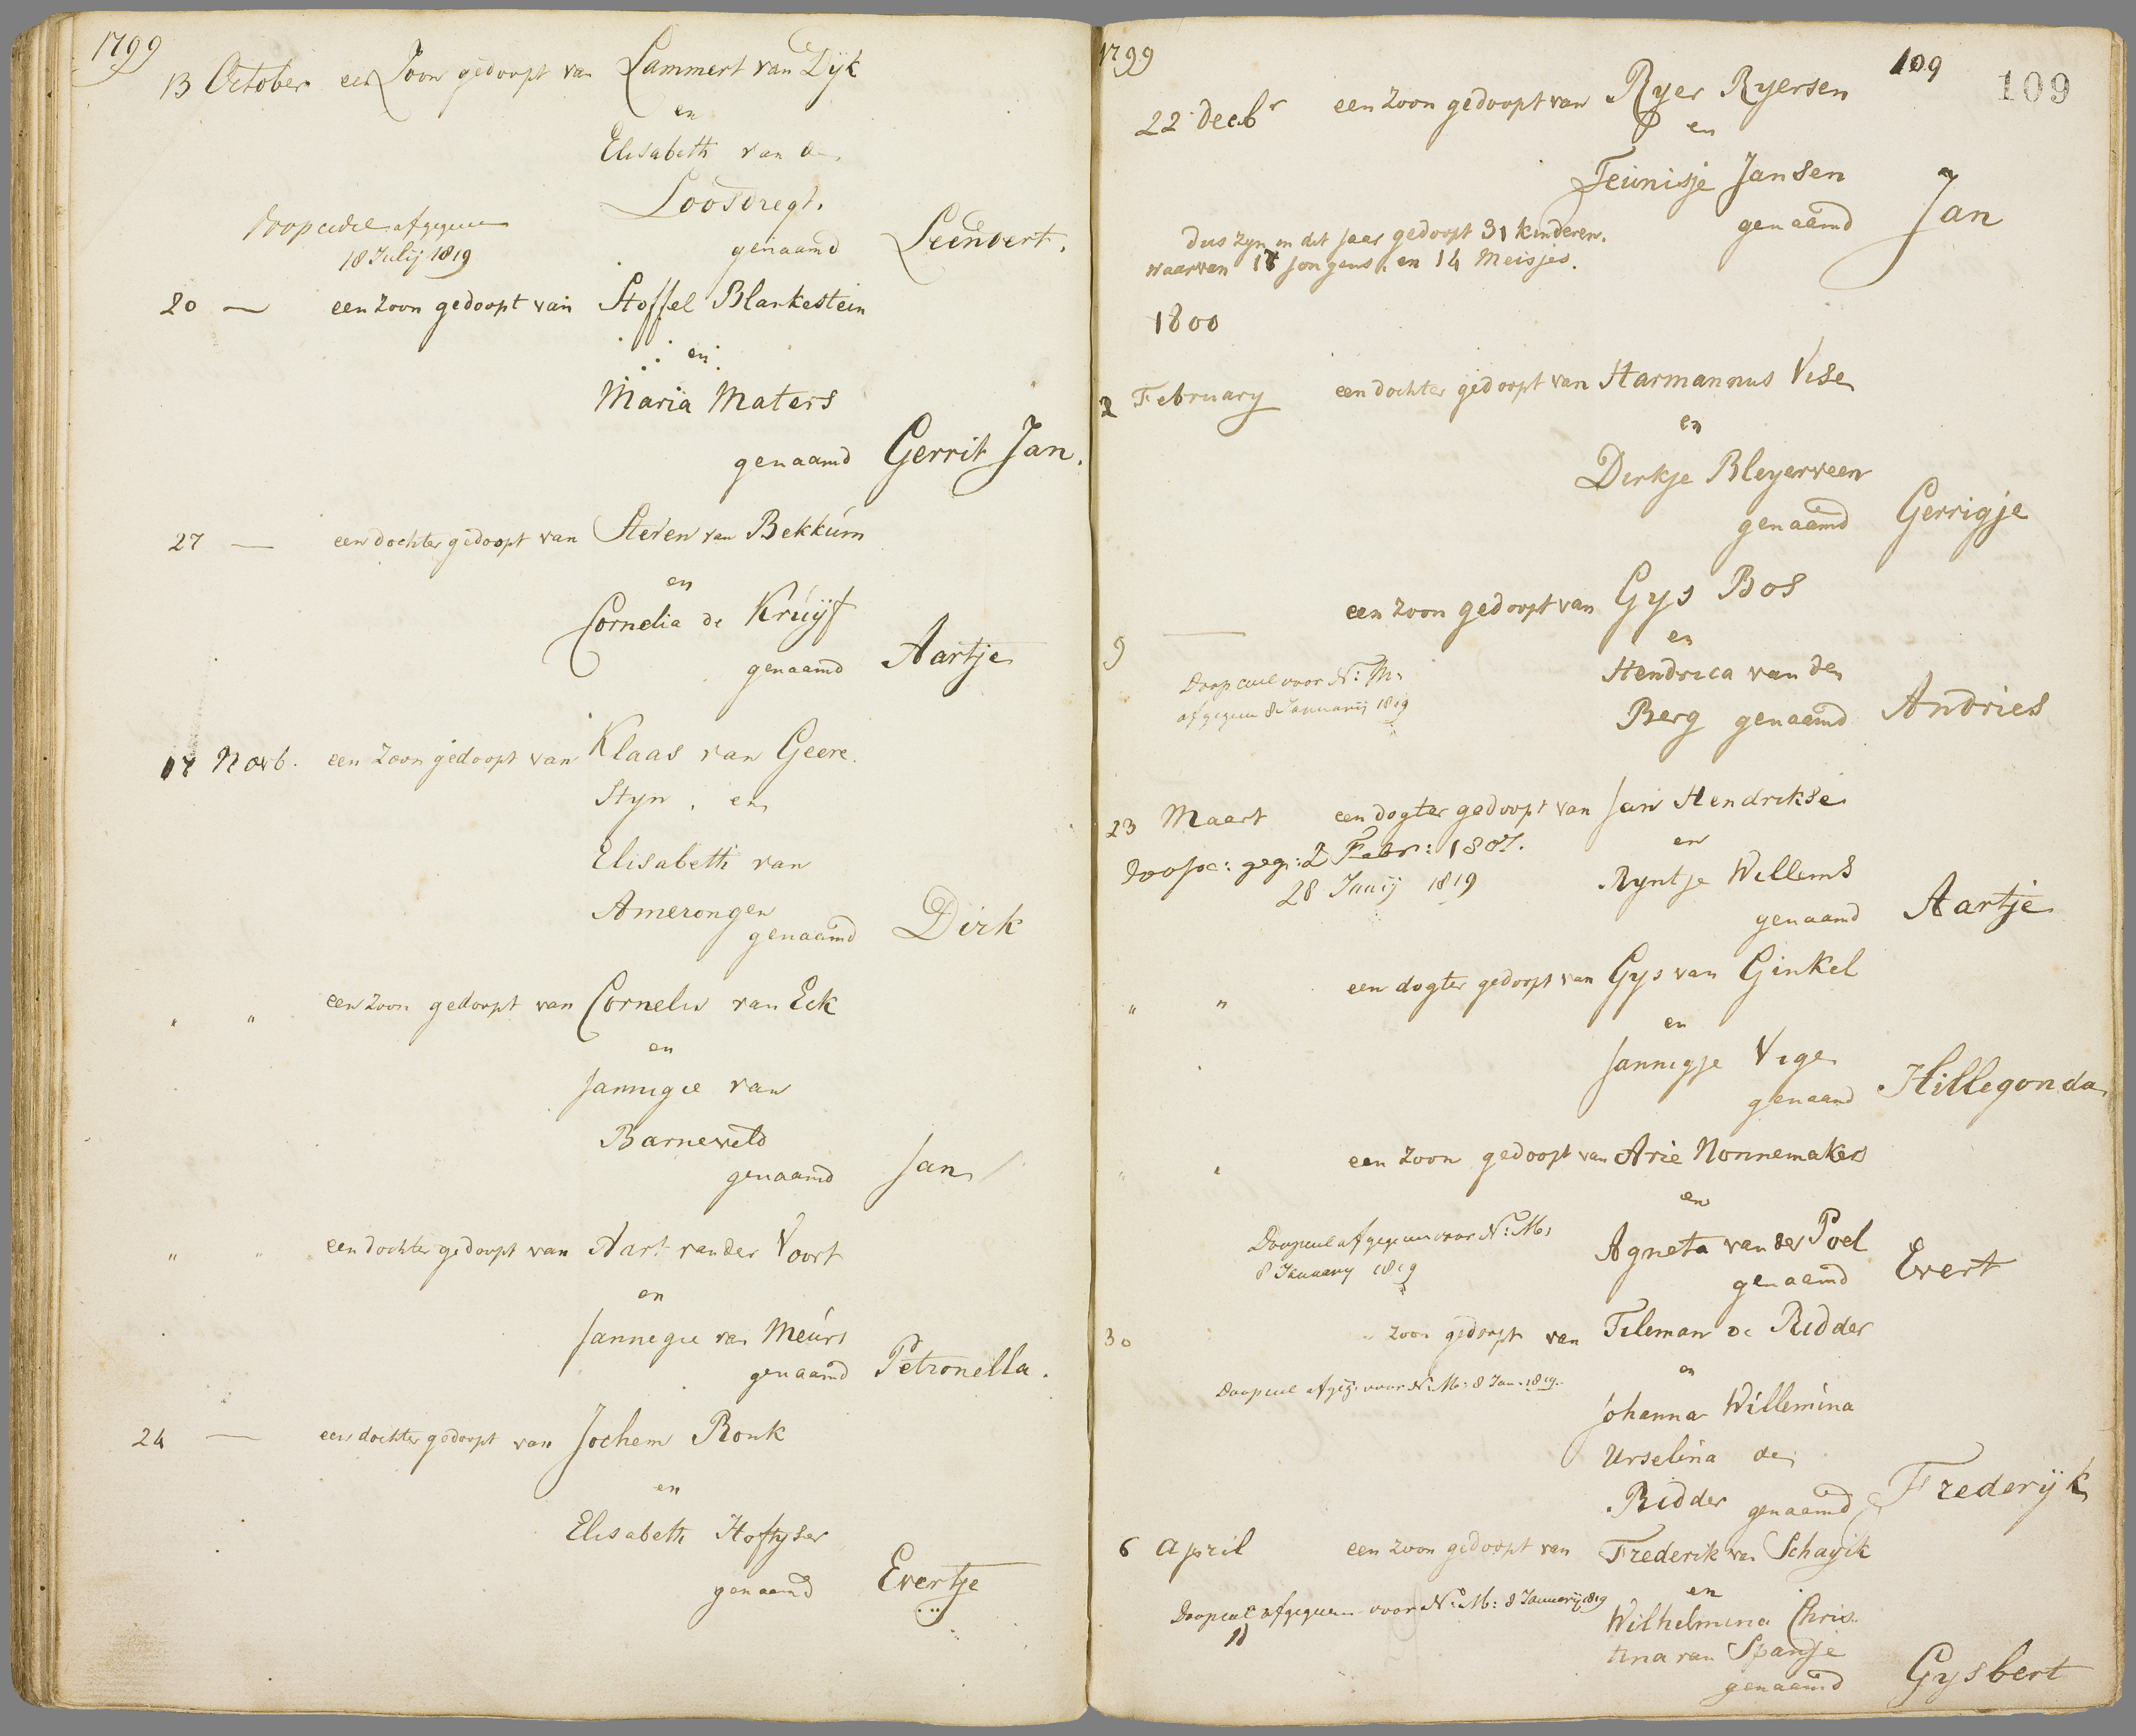 1799
13 October een Zoon gedoopt van Lammert van Dyk
en
Elisabeth van de
Loosdregt.
genaamd Leendert.
Doopcedel afgegeven
18 Julij 1819
20 — een zoon gedoopt van Stoffel Blankestein
en
Maria Maters
genaamd Gerrit Jan.
27 — een dochter gedoopt van Steven van Bekkum
en
Cornelia de Kruijf
genaamd Aartje
17 Novb. een zoon gedoopt van Klaas van Geere
Styn, en
Elisabeth van
Amerongen
genaamd Dirk
" " een zoon gedoopt van Cornelis van Eck
en
Jannigie van
Barneveld
genaamd Jan
" " een dochter gedoopt van Aart vander Voort
en
Jannegie van Meurs
genaamd Petronella.
24 — een dochter gedoopt van Jochem Ronk
en
Elisabeth Hoftyser
genaamd Evertje
1799
109
109
22 Decbr een zoon gedoopt van Ryer Ryersen
en
Teunisje Jansen
genaamd Jan
Dus zyn in dit Jaar gedoopt 31 kinderen.
waarvan 17 Jongens. en 14 Meisjes.
1800
2 February een dochter gedoopt van Harmannus Vise
en
Dirkje Bleyerveen
genaamd Gerrigje
9 — een zoon gedoopt van Gys Bos
en
Hendrica van den
Berg genaamd Andries
Doopceel voor N: M:
afgegeven 8 Januarij 1819
23 Maart een dogter gedoopt van Jan Hendrikse
en
Doopc: geg: 2 Febr: 1807.
28 Junij 1819
Ryntje Willems
genaamd Aartje
" " een dogter gedoopt van Gys van Ginkel
en
Jannigje Vige
genaamd Hillegonda
" " een zoon gedoopt van Arie Nonnemaker
en
Agneta van der Poel
genaamd Evert
Doopceel afgegeven voor N: M:
8 January 1819
30 " zoon gedoopt van Tileman de Ridder
en
Doopceel afgeg: voor N: M: 8 Jan. 1819.
Johanna Willemina
Urselina de
Ridder genaamd Frederyk
6 April een zoon gedoopt van Frederik van Schayik
en
Doopceel afgegeven voor N: M: 8 Januarij 1819
Wilhelmina Chris
tina van Spanje
genaamd Gysbert